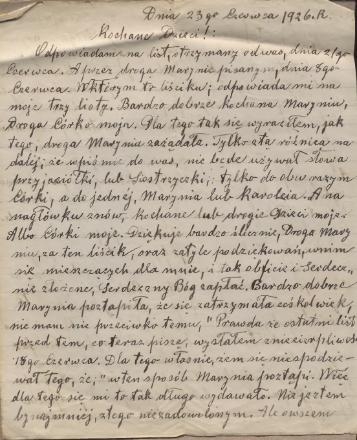 Dnia 23go Czerwca 1926.R.
Kochane Dzieci!:
Odpowiadam na list, otrzymany od was, dnia 21go
Czerwca. A przez droga Marynie pisanym, dnia 8go
Czerwca. W którym to liściku; odpowiada mi na
moje trzy listy. Bardzo dobrze kochana Maryniu,
Droga Córko moja. Dla tego tak się wyraziłem, jak
tego, droga Marynia zażądała. Tylko ta różnica na
dalej; że w piśmie do was, nie bede używał słowa
przyjaciółki, lub Siostrzyczki,; tylko do obu razym
Córki, a do jednej, Marynia lub Karolcia. A na
nagłówku znów, kochane lub drogie Dzieci moje.
Albo Córki moje. Dziękuje bardzo ślicznie, Droga Mary
niu, za ten liścik, oraz za tyle podziękowań, w nim
się mieszczących dla mnie, i tak obficie i Serdecz„
nie złożone, Serdeczny Bóg zapłać. Bardzo dobrze
Marynia postąpiła, że się zatrzymała coś kolwiek,
nie mam nic przeciwko temu, "Prawda że ostatni list
przed tem, co teraz pisze, wysłałem zniecierpliwos
18go czerwca. Dla tego właśnie, żem się niespodzie-
wał tego, że; "w ten sposób Marynia postąpi. Więc
dla tego się mi to tak długo wydawało. Nie jestem
by najmniej, z tego niezadowolonym. Ale owszem